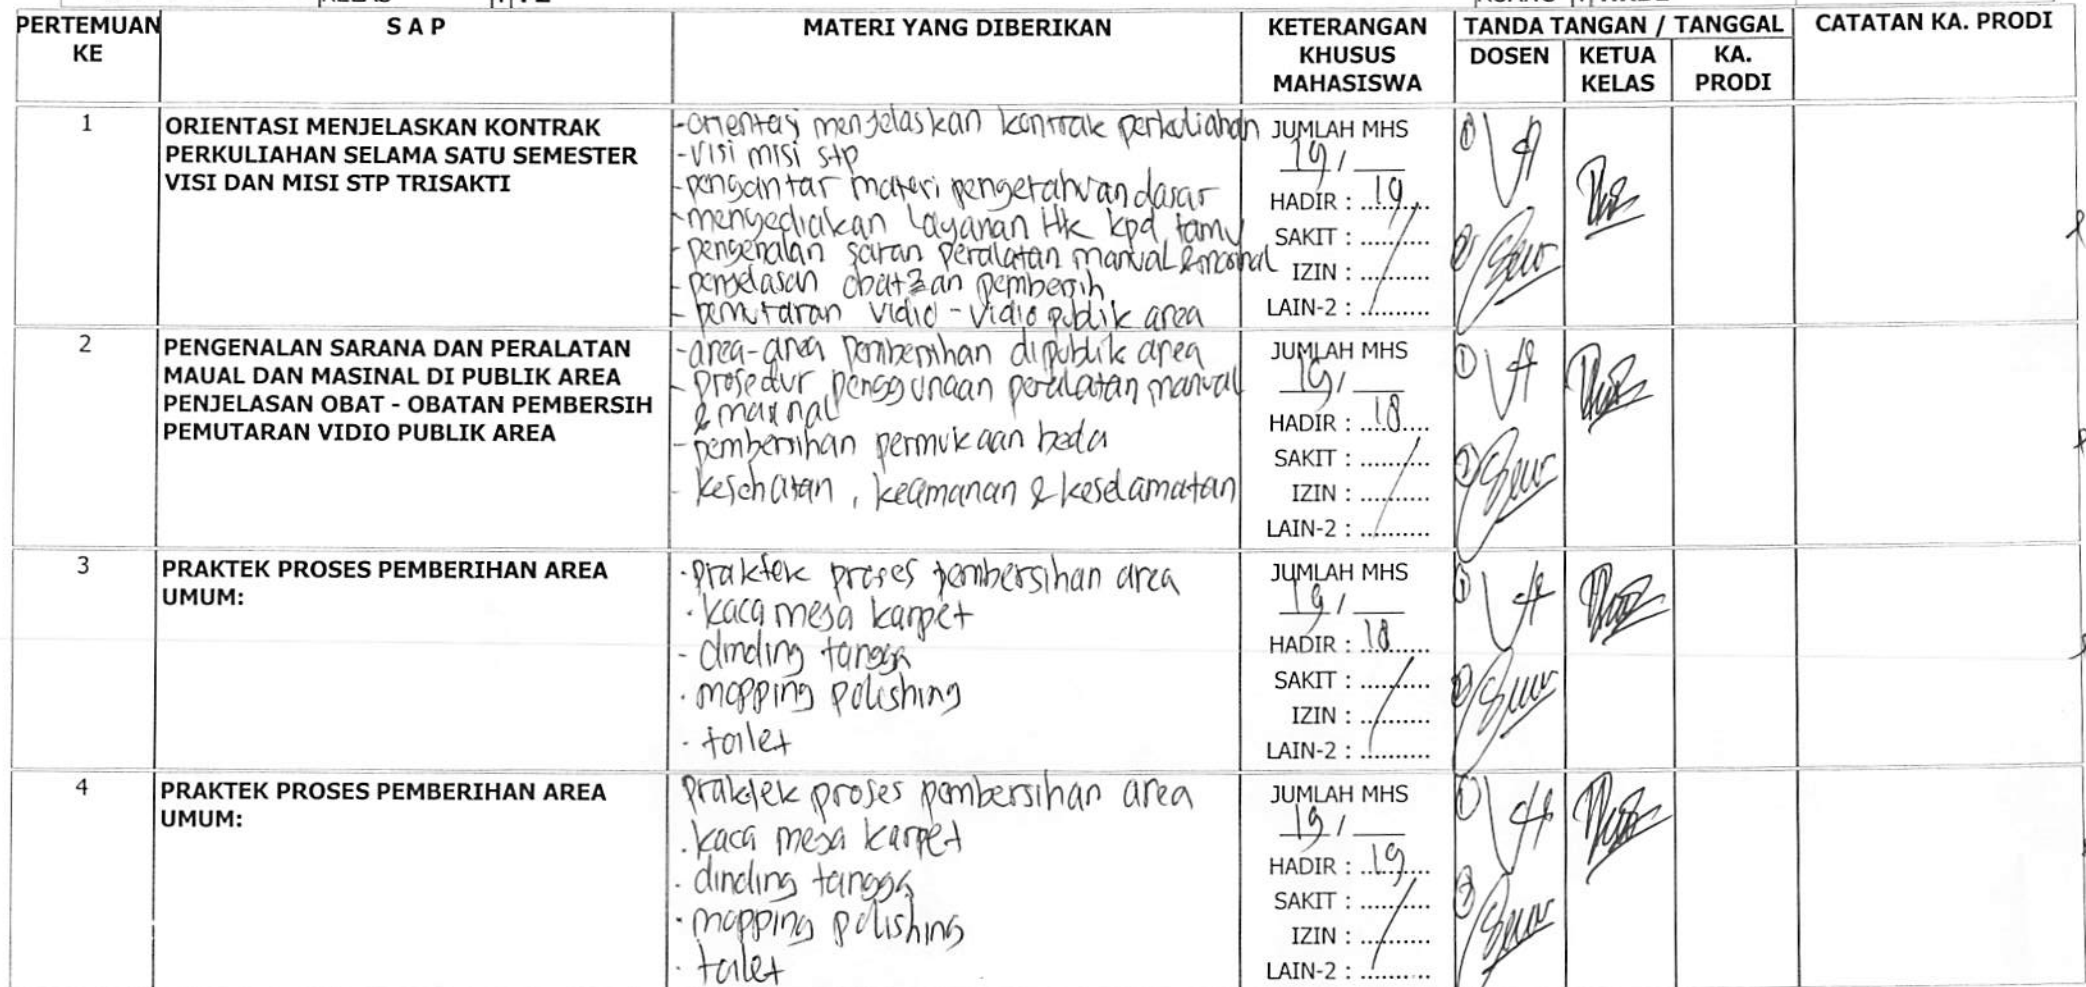 PERTEMUAN KE
S A P
MATERI YANG DIBERIKAN
KETERANGAN KHUSUS MAHASISWA
TANDA TANGAN / TANGGAL
DOSEN
KETUA KELAS
KA. PRODI
CATATAN KA. PRODI
1
ORIENTASI MENJELASKAN KONTRAK
PERKULIAHAN SELAMA SATU SEMESTER
VISI DAN MISI STP TRISAKTI
- orientasi menjelaskan kontrak perkuliahan
- visi misi stp
- pengantar materi pengetahuan dasar
- menyediakan layanan Hk kpd tamu
- pengenalan saran peralatan manual &
- penjelasan obat2an pembersih
- pemutaran vidio - vidio publik area
JUMLAH MHS
19 / ___
HADIR : 19
SAKIT : ..........
IZIN : ..........
LAIN-2 : ..........
1
2
2
PENGENALAN SARANA DAN PERALATAN
MAUAL DAN MASINAL DI PUBLIK AREA
PENJELASAN OBAT - OBATAN PEMBERSIH
PEMUTARAN VIDIO PUBLIK AREA
- area-area pembersihan dipublik area
- prosedur penggunaan peralatan manual
& masinal
- pembersihan permukaan beda
- kesehatan , keamanan & keselamatan
JUMLAH MHS
19 / ___
HADIR : 18
SAKIT : ..........
IZIN : ..........
LAIN-2 : ..........
1
2
3
PRAKTEK PROSES PEMBERIHAN AREA
UMUM:
- praktek proses pembersihan area
- kaca mesa karpet
- dinding tangga
- mopping polishing
- toilet
JUMLAH MHS
19 / ___
HADIR : 18
SAKIT : ..........
IZIN : ..........
LAIN-2 : ..........
1
2
4
PRAKTEK PROSES PEMBERIHAN AREA
UMUM:
praktek proses pembersihan area
- kaca mesa karpet
- dinding tangga
- mopping polishing
- toilet
JUMLAH MHS
19 / ___
HADIR : 19
SAKIT : ..........
IZIN : ..........
LAIN-2 : ..........
1
2